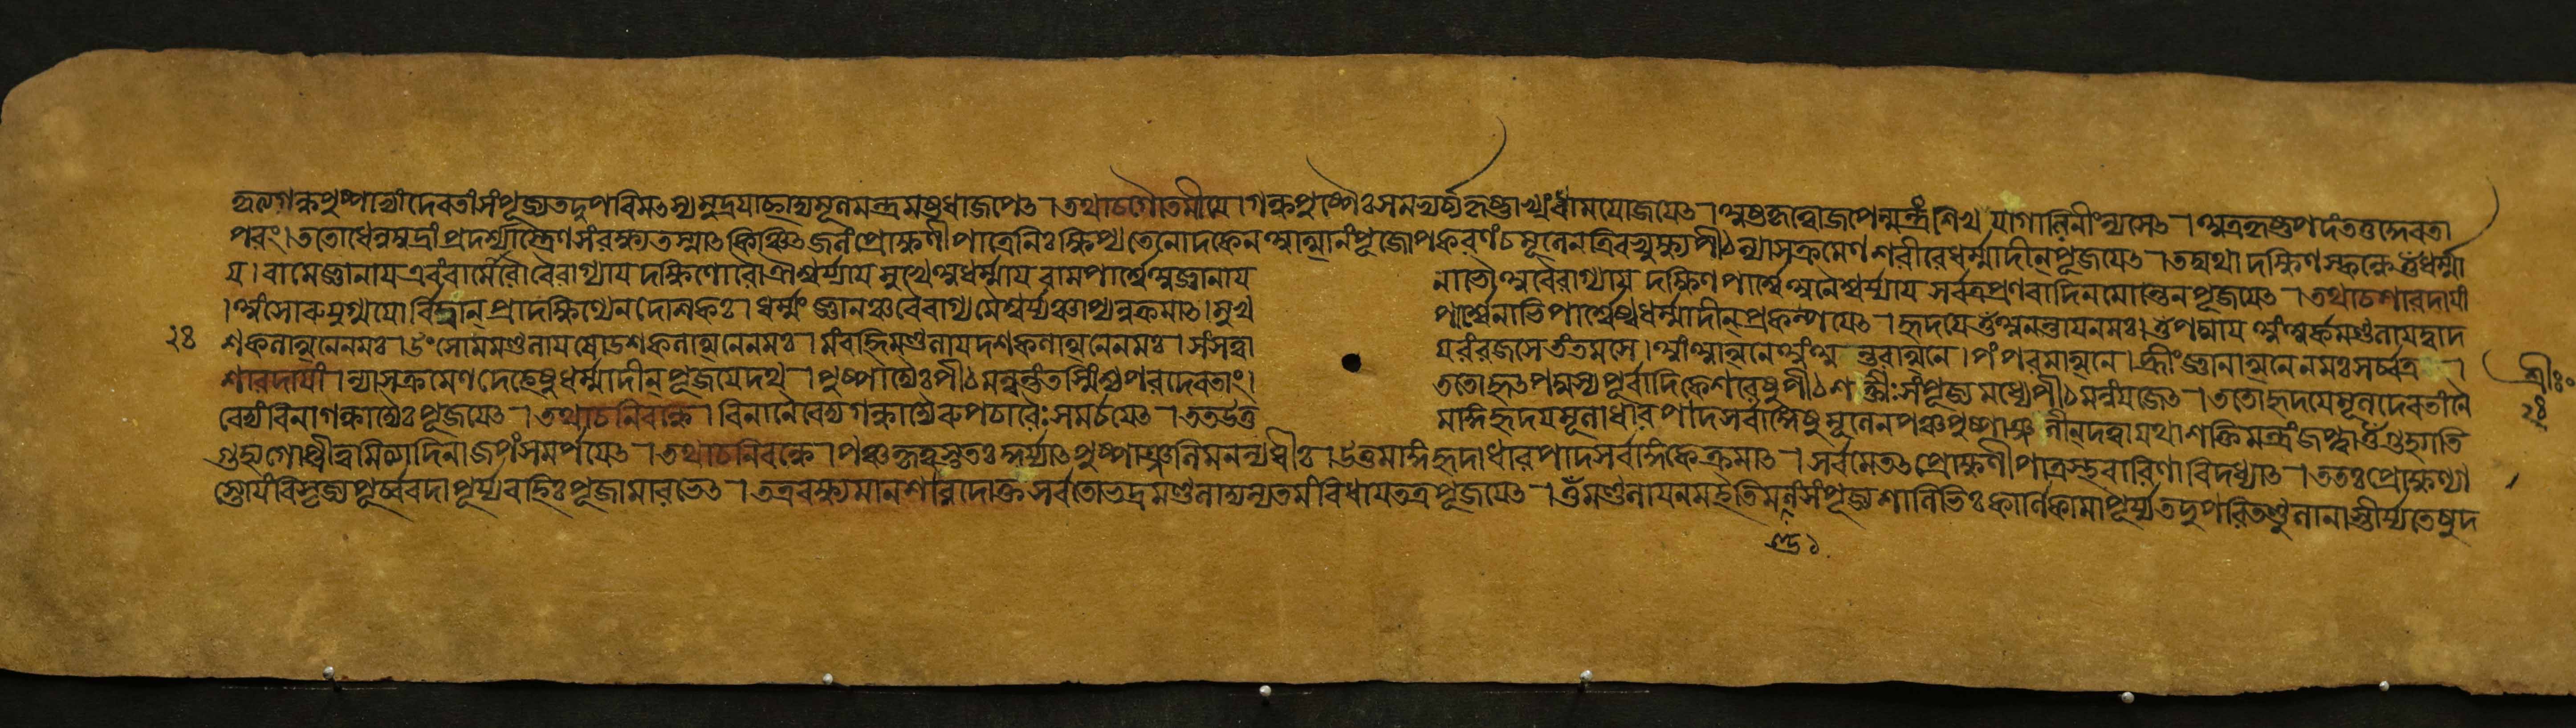 ত্মলগন্ধপুষ্পাভ্যাং দেবতাং সংপূজ্য তদুপরি মৎস্যমুদ্রয়াচ্ছাদ্য মূলমন্ত্রমষ্টধা জপেৎ । তথাচ গৌতমীয়ে । গন্ধপুষ্পৈঃ সমভ্যর্চ্য কৃষ্ণাখ্যং ধাম যোজয়েৎ । অষ্টকৃত্বো জপেন্মন্ত্রং শিখ গালিনীং ন্যসেৎ । অত্র কৃষ্ণপদং তত্তদ্দেবতা
পরং । ততো ধেনুমুদ্রাং প্রদর্শ্যাস্ত্রেণ সংরক্ষ্য তস্মাৎ কিঞ্চিৎ জলং প্রোক্ষণীপাত্রে নিঃক্ষিপ্য তেনোদকেন আত্মানং পূজোপকরণং চ মূলেন ত্রিরভ্যুক্ষ্য পীঠন্যাসক্রমেণ শরীরে ধর্ম্মাদীন্ পূজয়েৎ । তদ্যথা দক্ষিণস্কন্ধে ওঁ ধর্ম্মা
য় । বামে জ্ঞানায় এবং বামোরৌ বৈরাগ্যায় দক্ষিণোরৌ ঐশ্বর্য্যায় মুখে অধর্ম্মায় বামপার্শ্বে অজ্ঞানায় নাভৌ অবৈরাগ্যায় দক্ষিণপার্শ্বে অনৈশ্বর্য্যায় সর্বত্র প্রণবাদিনমোন্তেন পূজয়েৎ । তথাচ শারদায়াং
। অংসোরুযুগ্ময়োর্বিদ্বান্ প্রাদক্ষিণ্যেন দেশিকঃ । ধর্ম্মং জ্ঞানঞ্চ বৈরাগ্যমৈশ্বর্য্যঞ্চাপ্যনুক্রমাৎ । মুখ পার্শ্বে নাভি পার্শ্বেষ্বধর্ম্মাদীন্ প্রকল্পয়েৎ । হৃদয়ে ওঁ অনন্তায় নমঃ । ওঁ পদ্মায় অং অর্কমণ্ডলায় দ্বাদ
২৪ শকলাত্মনে নমঃ । উং সোমমণ্ডলায় ষোডশকলাত্মনে নমঃ । মং বহ্নিমণ্ডলায় দশকলাত্মনে নমঃ । সং সত্ত্বা য় রং রজসে তং তমসে । আং আত্মনে অং অন্তরাত্মনে । পং পরমাত্মনে । হ্রীং জ্ঞানাত্মনে নমঃ সর্ব্বত্র ।
শারদায়াং । ন্যাসক্রমেণ দেহেষু ধর্ম্মাদীন্ পূজয়েদথ । পুষ্পাদ্যৈঃ পীঠমন্ত্রন্তং তস্মিংশ্চ পরদেবতাং । ততো হৃৎপদ্মস্য পূর্বাদিকেশরেষু পীঠশক্তীঃ সংপূজ্য মধ্যে পীঠমন্ত্রং যজেৎ । ততো হৃদয়ে মূলদেবতাং নৈ শ্রীঃ
বেদ্যং বিনা গন্ধাদ্যৈঃ পূজয়েৎ । তথাচ নিবন্ধে । বিনা নৈবেদ্য গন্ধাদ্যৈরুপচারৈঃ সমর্চয়েৎ । তত উত্ত মাঙ্গহৃদয়মূলাধারপাদসর্বাঙ্গেষু মূলেন পঞ্চপুষ্পাঞ্জলীন্ দত্বা যথাশক্তি মন্ত্রং জপ্ত্বা ওঁ গুহ্যাতি ২৪
গুহ্যগোপ্ত্রীত্বমিত্যাদিনা জপং সমর্পয়েৎ । তথাচ নিবন্ধে । পঞ্চকৃত্বস্তুতঃ কুর্য্যাৎ পুষ্পাঞ্জলিমনন্যধীঃ । উত্তমাঙ্গহৃদাধারপাদসর্বাঙ্গকে ক্রমাৎ । সর্বমেতৎ প্রোক্ষণীপাত্রস্থবারিণা বিদধ্যাৎ । ততঃ প্রোক্ষণ্যা
স্তোয়ং বিসৃজ্য পূর্ব্ববদাপূর্য্য বহিঃ পূজামারভেৎ । তত্র বক্ষ্যমানশারদোক্ত সর্বতোভদ্রমণ্ডলাদ্যন্যতমং বিধায় তত্র পূজয়েৎ । ওঁ মণ্ডলায় নম ইতি মলং সংপূজ্য শালিভিঃ কর্ণিকামাপূর্য্য তদুপরি তণ্ডুলানাস্তীর্য্য তেষু দ
ণ্ড ১